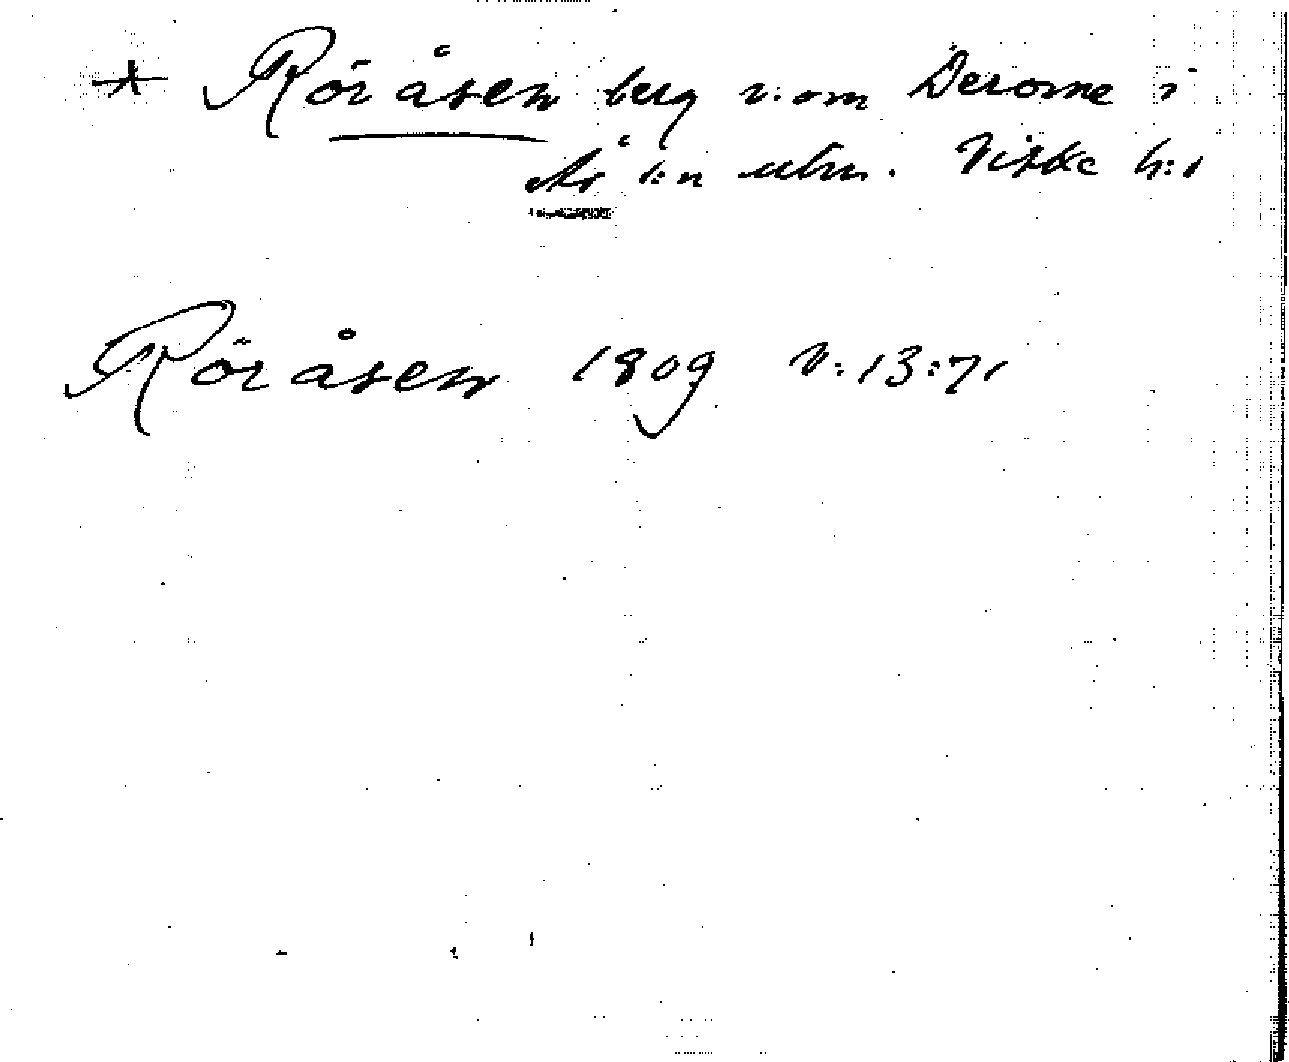 * Röråsen berg v. om Derome i
Ås s:n utm. Viske h:d
Röråsen 1809 V:13:71